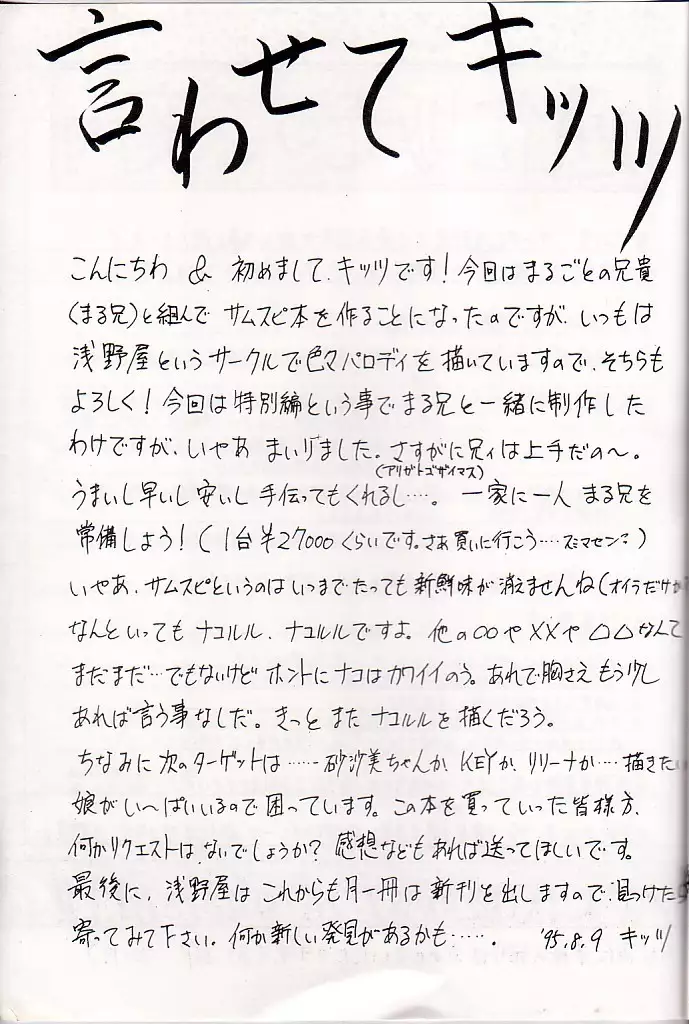 言わせてキッツ
こんにちわ & 初めまして、キッツです！今回はまるごとの兄貴
(まる兄)と組んで サムスピ本を作ることになったのですが、いつもは
浅野屋というサークルで色々パロディを描いていますので、そちらも
よろしく！今回は特別編という事でまる兄と一緒に制作した
わけですが、いやあ まいりました。さすがに兄ィは上手だの〜。
(アリガトゴザイマス)
うまいし早いし安いし 手伝ってもくれるし‥‥。 一家に一人 まる兄を
常備しよう！(1台￥27000くらいです。さあ買いに行こう‥‥スミマセン？)
いやあ、サムスピというのはいつまでたっても新鮮味が消えませんね(オイラだけか
なんといっても ナコルル、ナコルルですよ。他の○○や××や△△なんて
まだまだ‥でもないけど ホントにナコはカワイイのう。あれで胸さえもう少し
あれば言う事なしだ。きっとまた ナコルルを描くだろう。
ちなみに次のターゲットは‥‥‥砂沙美ちゃんか、KEYか、リリーナか‥‥描きたい
娘がい〜ぱいいるので困っています。この本を買っていった皆様方、
何かリクエストは、ないでしょうか？感想などもあれば送ってほしいです。
最後に、浅野屋はこれからも月一冊は新刊を出しますので、見つけたら
寄ってみて下さい。何か新しい発見があるかも‥‥‥。 '95.8.9 キッツ